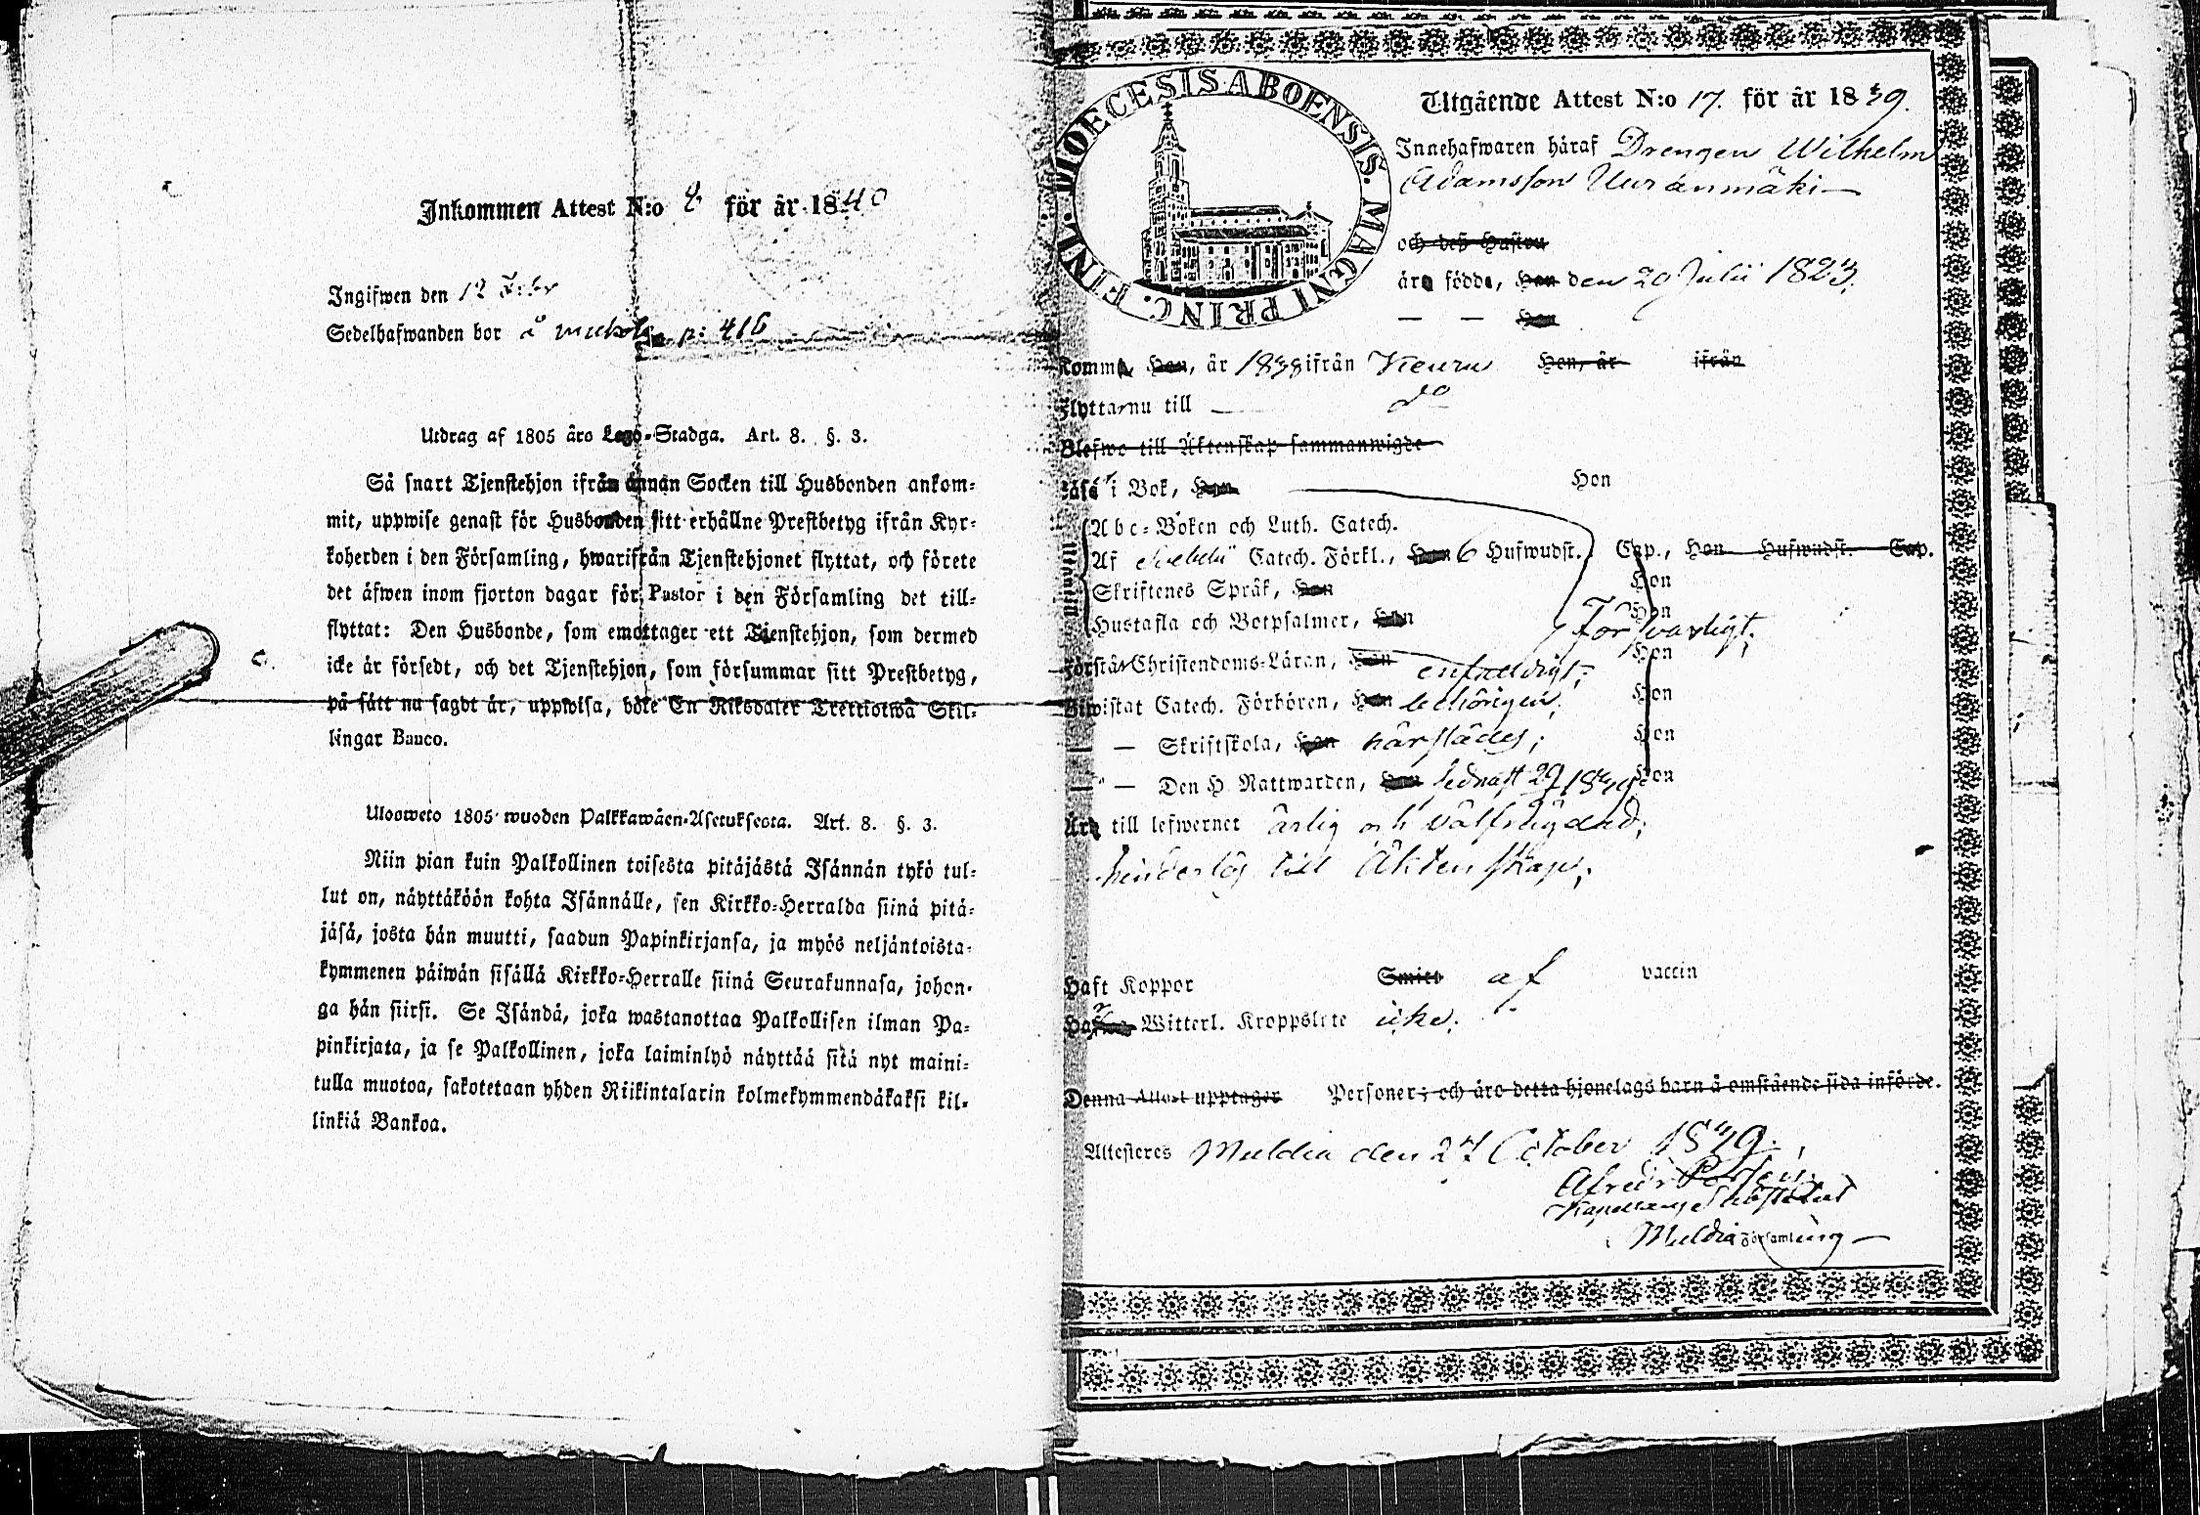 Inkommen Attest N:o 8 för år 1840
Ingifwen den 12 Febr
Sedelhafwanden bor å p: 416
Utdrag af 1805 års Lego-Stadga. Art. 8. §. 3.
Så snart Tjenstehjon ifrån annan Socken till Husbonden ankom-
mit, uppwise genast för Husbonden sitt erhållne Prestbetyg ifrån Kyr-
koherden i den Församling, hwarifrån Tjenstehjonet flyttat, och förete
det äfwen inom fjorton dagar för Pastor i den Församling det till-
flyttat: Den Husbonde, som emottager ett Tjenstehjon, som dermed
icke är försedt, och det Tjenstehjon, som försummar sitt Prestbetyg,
på sätt nu sagdt är, uppwisa, böte En Riksdaler Trettiotwå Skil-
lingar Banco.
Ulosweto 1805 wuoden Palkkawäen-Asetuksesta. Art. 8. §. 3.
Niin pian kuin Palkollinen toisesta pitäjästä Isännän tykö tul-
lut on, näyttäköön kohta Isännälle, sen Kirkko-Herralda siinä pitä-
jäsä, josta hän muutti, saadun Papinkirjansa, ja myös neljäntoista-
kymmenen päiwän sisällä Kirkko-Herralle siinä Seurakunnasa, johon-
ga hän siirsi. Se Isändä, joka wastanottaa Palkollisen ilman Pa-
pinkirjata, ja se Palkollinen, joka laiminlyö näyttää sitä nyt maini-
tulla muotoa, sakotetaan yhden Riikintalarin kolmekymmendäkaksi kil-
linkiä Bankoa.
DIOECESIS ABOENSIS. MAGNI PRINC. FINL.
Utgående Attest N:o 17. för år 1839.
Innehafwaren häraf Drengen Wilhelm
Adamsson Uuranmäki
och deß Hustru
äro födde, Han den 29 Julii 1823.
— — Hon
Komma Han, år 1838 ifrån Keuru Hon, år ifrån
Flytta nu till do
Blefwo till Äktenskap sammanwigde
Läsa i Bok, Han Hon
Abc-Boken och Luth. Catech.
Utantil
Af Catech. Förkl., Han 6 Hufwudst. Cap., Hon Hufwudst. Cap.
Skriftenes Språk, Han Hon
Hustafla och Botpsalmer, Han Hon
Förswarligt.
Förstå Christendoms-Läran, Han enfaldigt; Hon
Biwistat Catech. Förhören, Han behörigen; Hon
— — Skriftskola, Han härstädes; Hon
— — Den H. Nattwarden, Han sednast Hon
Äro till lefwernet ärlig och välfrägdad;
hinderlös till Äktenskap;
Haft Koppor Smitto af vaccin
Hafwa Witterl. Kroppslyte icke.
Denna Attest upptager Personer; och äro detta hjonelags barn å omstående sida införde.
Attesteras Muldia den 27 October 1839.
Muldia Församling